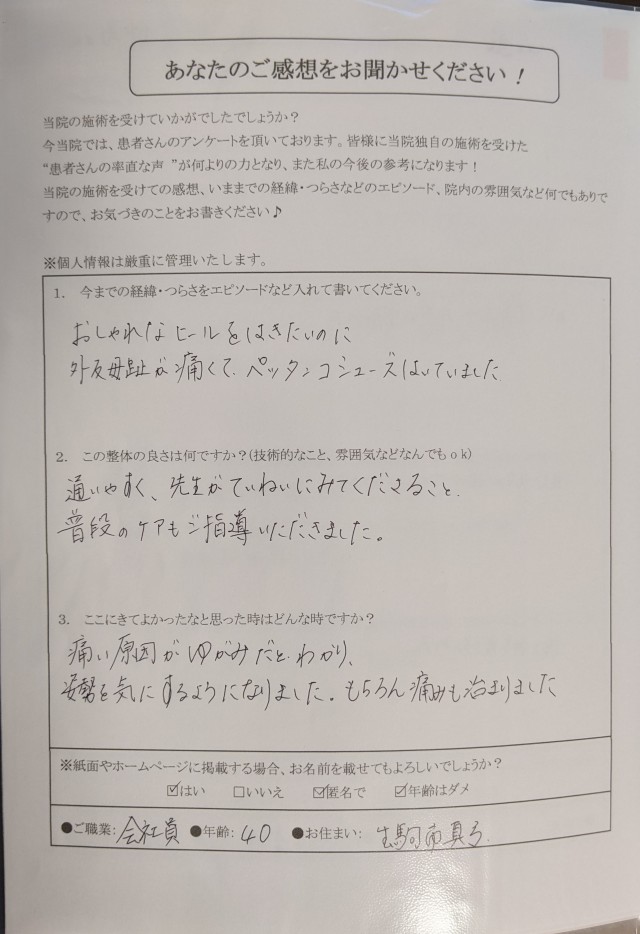 あなたのご感想をお聞かせください！
当院の施術を受けていかがでしたでしょうか？
今当院では、患者さんのアンケートを頂いております。皆様に当院独自の施術を受けた
“患者さんの率直な声 ”が何よりの力となり、また私の今後の参考になります！
当院の施術を受けての感想、いままでの経緯・つらさなどのエピソード、院内の雰囲気など何でもありで
すので、お気づきのことをお書きください♪
※個人情報は厳重に管理いたします。
1. 今までの経緯・つらさをエピソードなど入れて書いてください。
おしゃれなヒールをはきたいのに
外反母趾が痛くて、ペッタンコシューズはいていました
2. この整体の良さは何ですか？(技術的なこと、雰囲気などなんでもｏｋ)
通いやすく、先生がていねいにみてくださること、
普段のケアもご指導いただきました。
3. ここにきてよかったなと思った時はどんな時ですか？
痛い原因がゆがみだとわかり、
姿勢を気にするようになりました。もちろん痛みも治まりました
※紙面やホームページに掲載する場合、お名前を載せてもよろしいでしょうか？
☑はい □いいえ ☑匿名で ☑年齢はダメ
●ご職業: 会社員 ●年齢: 40 ●お住まい: 生駒市真弓